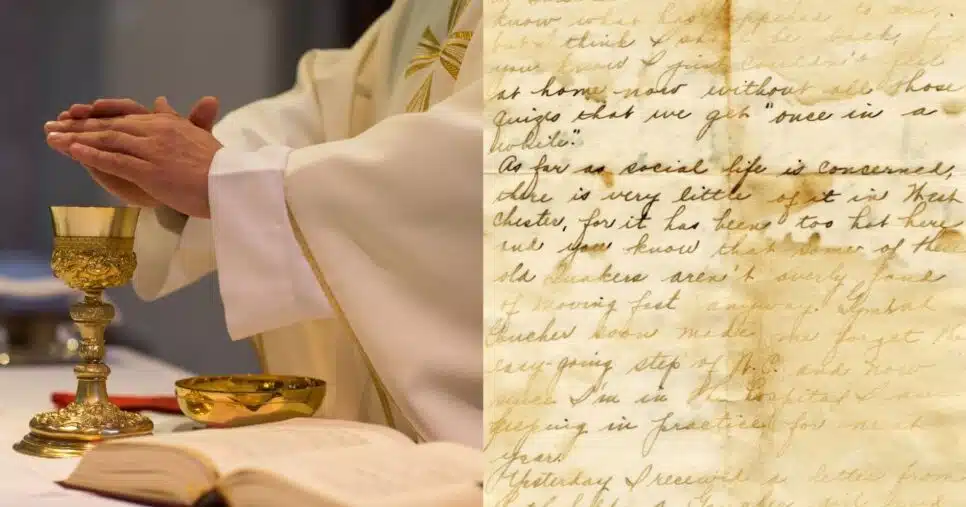 know what has happened to me,
but I think I shall be back, for
you know I just couldn't feel
at home now without all those
quizes that we get "once in a
while."
As far as social life is concerned,
there is very little of it in West
Chester, for it has been too hot here
and you know that some of these
old Quakers aren't overly fond
of moving fast anyway.
soon made me forget the
easy-going step of N.C. and now
since I'm in the hospital I am
in practice for me at
year.
Yesterday I received a letter from